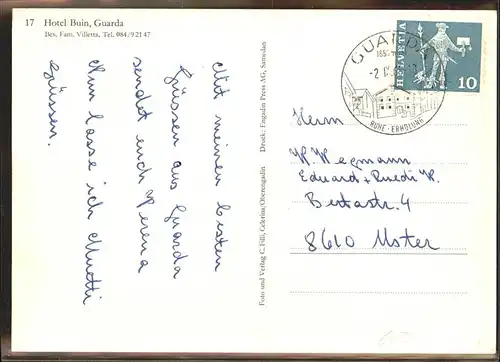 17 Hotel Buin, Guarda
Bes. Fam. Villetta, Tel. 084/9 21 47
Mit meinen besten
Grüssen aus Guarda
sendet euch Verena
Nun lasse ich Muetti
grüssen.
Foto und Verlag C. Filli, Celerina/Oberengadin
Druck: Engadin Press AG, Samedan
GUARDA
RUHE · ERHOLUNG
HELVETIA
10
Herrn
W. Wegmann
Eduard + Ruedi W.
Bertastr. 4
8610 Uster